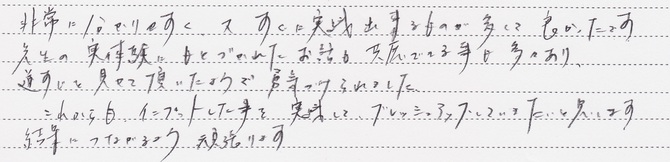 非常に分かりやすく、又 すぐに実践出来るものが多くて 良かったです
先生の 実体験にもとづかれた お話も 共感できる事も 多々あり、
道すじを 見せて頂いたようで 勇気づけられました。
これからも、インプットした事を 実践して、ブレッシュアップしていきたいと思います
結果につながるよう 頑張ります